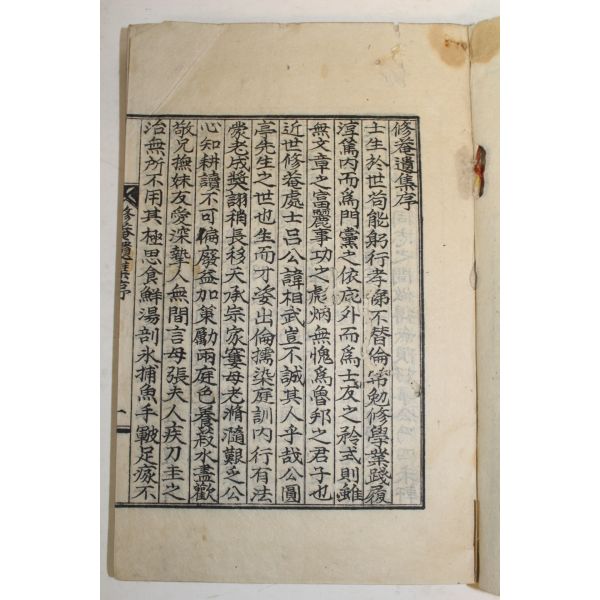 修菴遺集序
士生於世苟能躬行孝弟不替倫常勉修學業踐履
淳篤內而爲門黨之依庇外而爲士友之矜式則雖
無文章之富麗事功之彪炳無愧爲魯邦之君子也
近世修菴處士呂公諱相武豈不誠其人乎哉公圓
亭先生之世也生而才姿出倫擩染庭訓內行有法
蒙老成奬詡稍長移天承宗家寠母老滫瀡艱乏公
心知耕讀不可偏廢益加策勵兩庭色養菽水盡歡
敬兄撫妹友愛深摯人無間言母張夫人疾刀圭之
治無所不用其極思食鮮湯剖氷捕魚手皸足瘃不
修菴遺集序
一